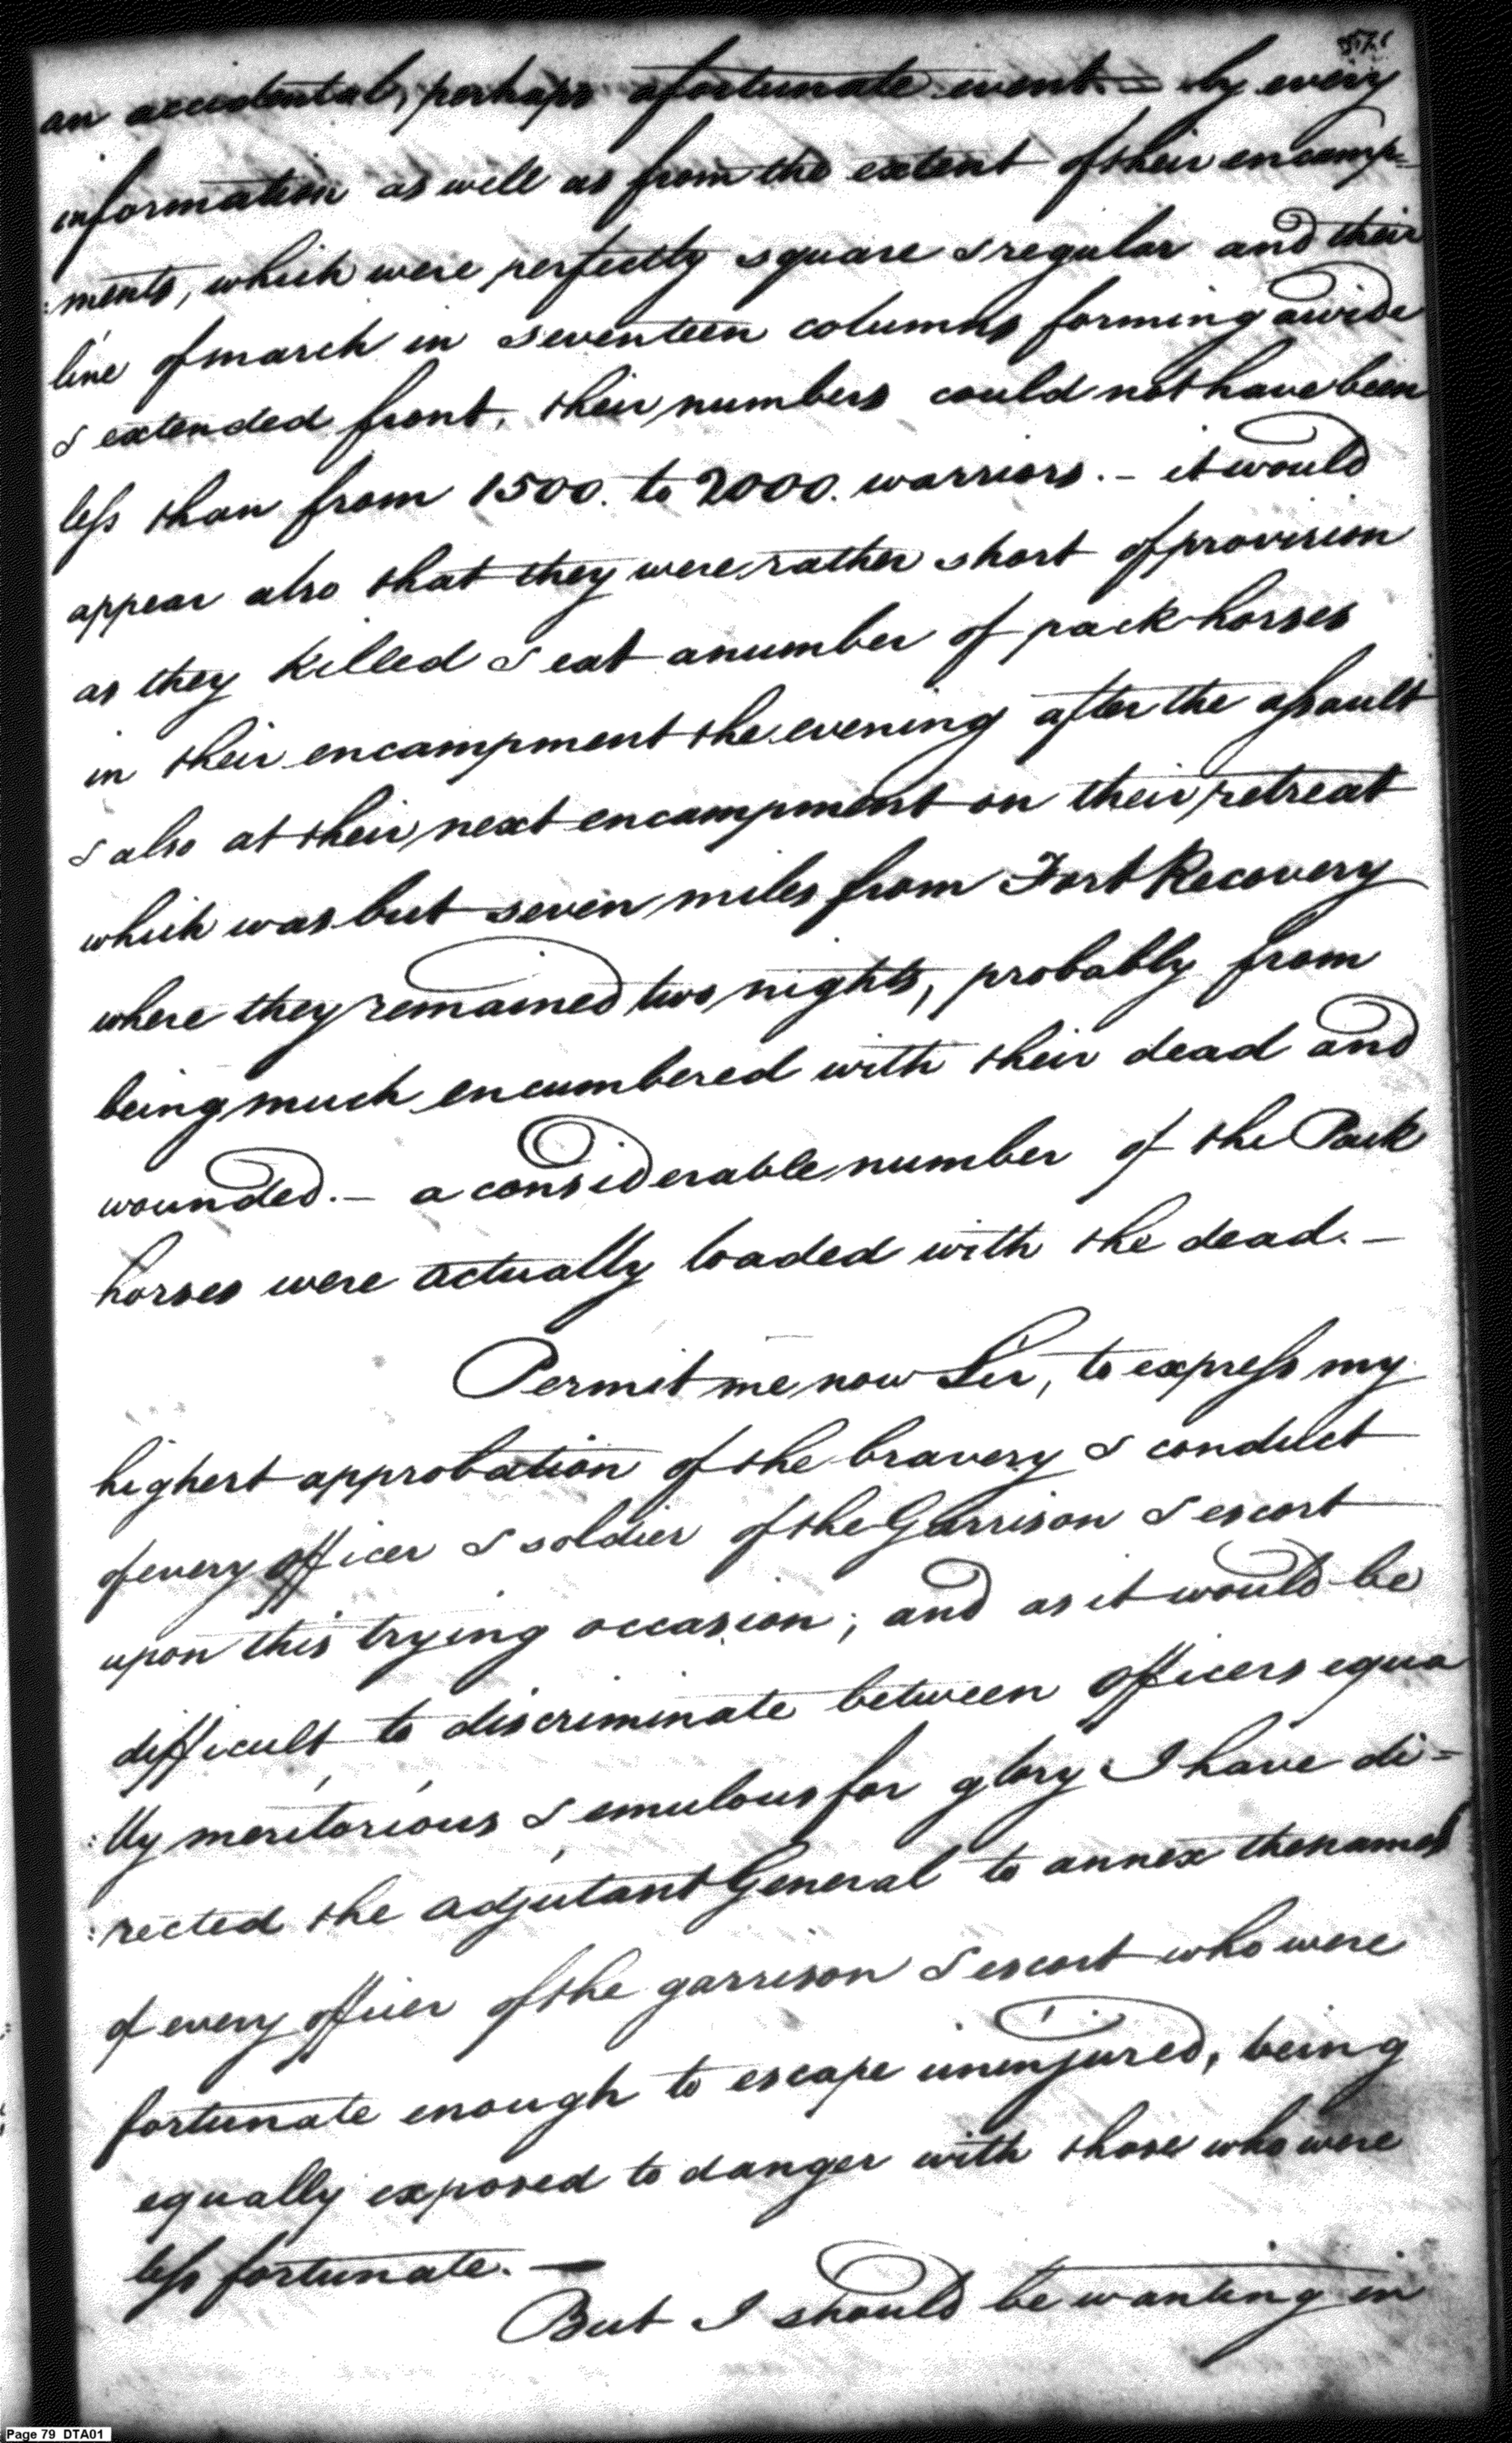 57.
an accidental, perhaps a fortunate event – by every
information as well as from the extent of their encamp=
:ments, which were perfectly square & regular and their
line of march in seventeen columns forming a wide
& extended front, their numbers could not have been
less than from 1500. to 2000. warriors. – it would
appear also that they were rather short of provision
as they killed & eat a number of pack horses
in their encampment the evening after the assault
& also at their next encampment on their retreat
which was but seven miles from Fort Recovery
where they remained two nights, probably from
being much encumbered with their dead and
wounded. – a considerable number of the Pack
horses were actually loaded with the dead. –
Permit me now Sir, to express my
highest approbation of the bravery & conduct
of every officer & soldier of the Garrison & escort
upon this trying occasion; and as it would be
difficult to discriminate between officers equa
:lly meritorious & emulous for glory I have di=
:rected the adjutant General to annex the names
of every officer of the garrison & escort who were
fortunate enough to escape uninjured, being
equally exposed to danger with those who were
less fortunate. —
But I should be wanting in
Page 79 DTA01